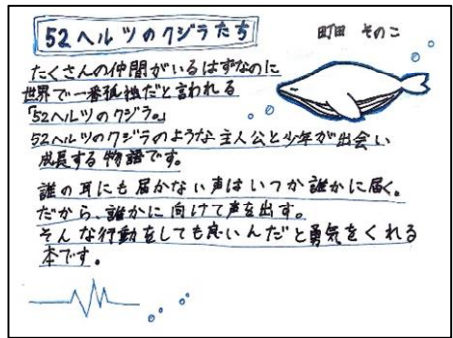 52ヘルツのクジラたち
町田 そのこ
たくさんの仲間がいるはずなのに
世界で一番孤独だと言われる
「52ヘルツのクジラ。」
52ヘルツのクジラのような主人公と少年が出会い
成長する物語です。
誰の耳にも届かない声はいつか誰かに届く。
だから、誰かに向けて声を出す。
そんな行動をしても良いんだと勇気をくれる
本です。